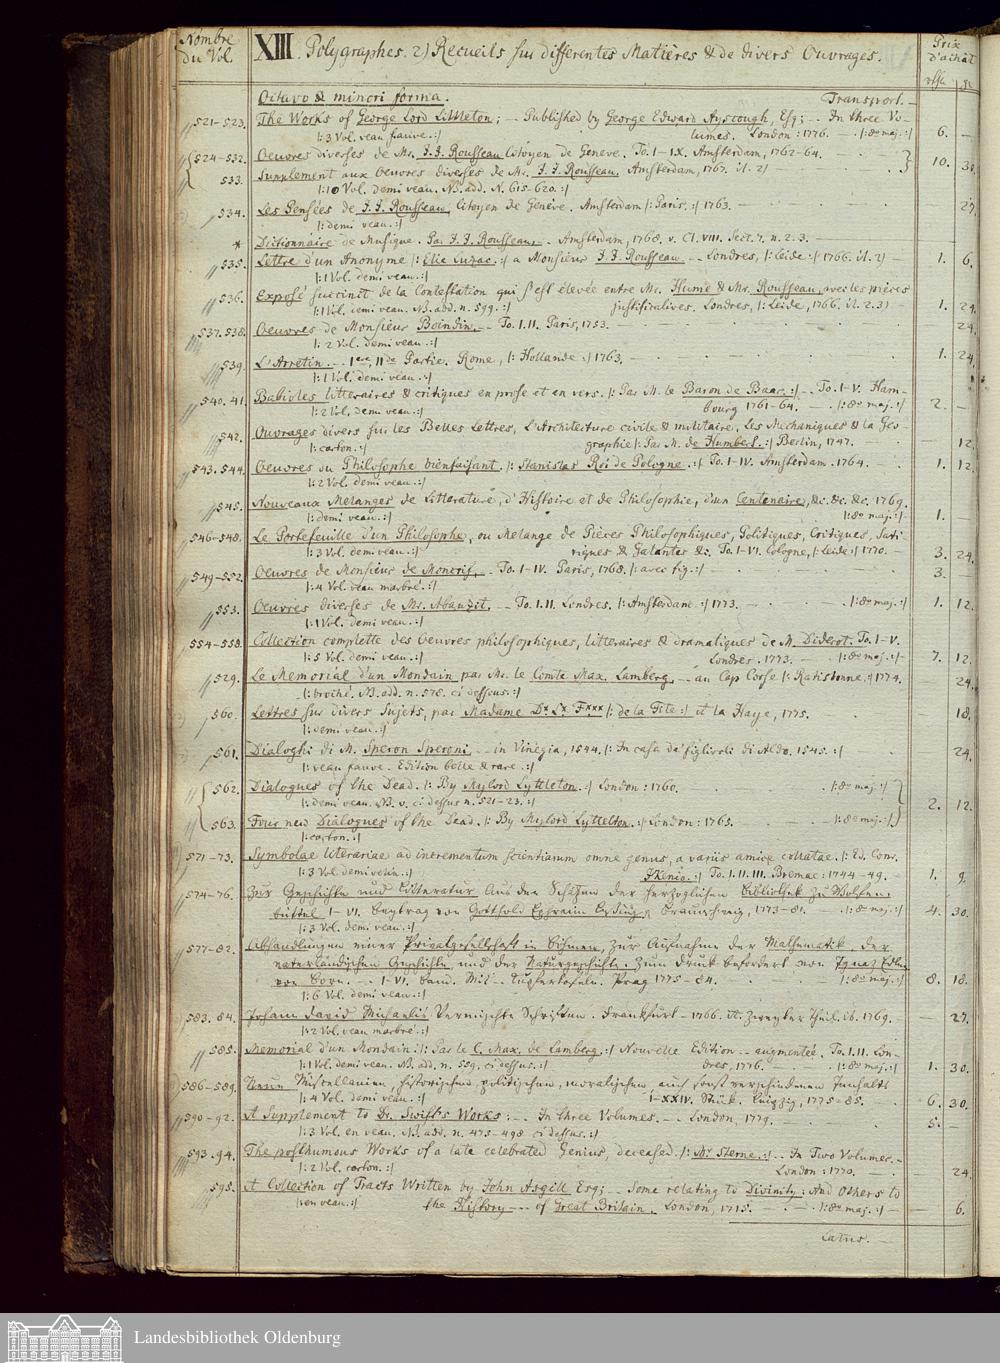 Nombre du Vol.
XIII. Polygraphes. 2) Recueils sur differentes Matières & de divers Ouvrages.
Prix d'achât
rthl. gr.
Octavo & minori forma. Transport. —
521-523. The Works of George Lord Littleton; -- Published by George Edward Ayscough, Esq; -- In three Vo-
|: 3 Vol. veau fauve. :| lumes. London: 1776. — |: 8o maj. :| 6. —
524-532. Oeuvres diverses de Mr. J. J. Rousseau Citoyen de Geneve. To. I-IX. Amsterdam, 1762-64. 10. 30.
533. Supplement aux Oeuvres diverses de Mr. J. J. Rousseau. Amsterdam, 1767. it. 2) —
|: 10 Vol. demi veau. NB. add. N. 615-620. :|
534. Les Pensées de J. J. Rousseau, Citoyen de Genève. Amsterdam |: Paris. :| 1763. — 27.
|: demi veau. :|
* Dictionnaire de Musique. Par J. J. Rousseau. -- Amsterdam, 1768. v. Cl. VIII. Sect. 7. n. 2. 3. —
535. Lettre d'un Anonyme |: Elie Luzac :| a Monsieur J. J. Rousseau -- Londres, |: Leide :| 1766. it. 2) — 1. 6.
|: 1 Vol. demi veau. :|
536. Exposé succinct de la Contestation qui s'est élevée entre Mr. Hume & Mr. Rousseau, avec les pièces
|: 1 Vol. demi veau. NB. add. n. 599. :| justificatives. Londres, |: Leide, 1766. it. 2. 3) — 1. 24.
537. 538. Oeuvres de Monsieur Boindin. -- To. I. II. Paris, 1753. 24.
|: 2 Vol. demi veau :|
539. L'Arretin. -- Iere, IIde Partie. Rome, |: Hollande :| 1763. — 1. 24.
|: 1 Vol. demi veau. :|
540. 41. Babioles litteraires & critiques en prose et en vers. |: Par M. le Baron de Baar. :| -- To. I-V. Ham-
|: 2 Vol. demi veau. :| bourg 1761-64. — |: 8o maj. :| 2. —
542. Ouvrages divers sur les Belles Lettres, L'Architecture civile & militaire, Les Mechaniques & la Geo-
|: carton. :| graphie |: Par M. de Humbert. :| Berlin, 1747. — 12.
543. 544. Oeuvres du Philosophe bienfaisant. |: Stanislas Roi de Pologne. :| To. I-IV. Amsterdam. 1764. — 1. 12.
|: 2 Vol. demi veau. :|
545. Nouveaux Melanges de Litterature, d'Histoire et de Philosophie, d'un Centenaire, &c. &c. &c. 1769.
|: demi veau. :| |: 8o maj. :| 1. —
546-548. Le Portefeuille d'un Philosophe, ou Melange de Pièces Philosophiques, Politiques, Critiques, Sati-
|: 3 Vol. demi veau. :| riques & Galantes &c. To. I-VI. Cologne, |: Leide :| 1770. — 3. 24.
549-552. Oeuvres de Monsieur de Moncrif. -- To. I-IV. Paris, 1768. |: avec fig. :| 3. —
|: 4 Vol. veau marbré. :|
553. Oeuvres diverses de Mr. Abauzit. -- To. I. II. Londres. |: Amsterdam. :| 1773. — |: 8o maj. :| 1. 12.
|: 1 Vol. demi veau. :|
554-558. Collection complette des Oeuvres philosophiques, litteraires & dramatiques de M. Diderot. To. I-V.
|: 5 Vol. demi veau. :| Londres. 1773. — |: 8o maj. :| 7. 12.
529. Le Memorial d'un Mondain, par Mr. le Comte Max. Lamberg. -- au Cap Corse |: Ratisbonne. :| 1774. 24.
|: broché. NB. add. n. 578. ci dessus. :|
560. Lettres sur divers Sujets, par Madame Dx Lx Fxxx |: de la Fite :| it. la Haye, 1775. 18.
|: demi veau. :|
561. Dialoghi di M. Speron Speroni -- in Vinegia, 1544. |: In casa de' figlivoli di Aldo. 1545. :| 24.
|: veau fauve. Edition belle & rare. :|
562. Dialogues of the Dead. |: By Mylord Lyttleton. :| London: 1760. — |: 8o maj. :|
|: demi veau. NB. v. ci dessus n. 521-23. :| 2. 12.
563. Four new Dialogues of the Dead. |: By Mylord Lyttelton. :| London: 1765. — |: 8o maj. :|
|: carton. :|
571-73. Symbolae literariae ad incrementum scientiarum omne genus, a variis amice collatae. |: Ed. Conr.
|: 3 Vol. demi velin. :| Ikenio. :| To. I. II. III. Bremae: 1744-49. — 1. 9.
574-76. Zur Geschichte und Litteratur. Aus den Schätzen der Herzoglichen Bibliothek zu Wolfen-
büttel I-VI. Beytrag von Gotthold Ephraim Lessing. Braunschweig, 1773-81. — |: 8o maj. :| 4. 30.
|: 3 Vol. demi veau. :|
577-82. Abhandlungen einer Privatgesellschaft in Böhmen, zur Aufnahme der Mathematik, der
vaterländischen Geschichte, und der Naturgeschichte. Zum Druck befördert von Ignaz Edlen
von Born. -- I-VI. Band. Mit -- Kupfertafeln. Prag 1775-84. — |: 8o maj. :| 8. 18.
|: 6 Vol. demi veau. :|
583. 84. Johann David Michaelis Vermischte Schriften. Frankfurt — 1766. it. Zweyter Theil. ib. 1769. — 27.
|: 2 Vol. veau marbré. :|
585. Memorial d'un Mondain. |: Par le C. Max. de Lamberg. :| Nouvelle Edition -- augmentée. To. I. II. Lon-
|: 1 Vol. demi veau. NB. add. n. 559. ci dessus. :| dres, 1776. — |: 8o maj. :| 1. 30.
586-589. Neue Miscellanien, historischen, politischen, moralischen, auch sonst verschiedenen Innhalts
|: 4 Vol. demi veau. :| I-XXIV. Stück. Leipzig, 1775-85. — 6. 30.
590-92. A Supplement to Dr. Swift's Works: -- In three Volumes. -- London, 1779. 5. —
|: 3 Vol. en veau. NB. add. n. 475-498 ci dessus. :|
593. 94. The posthumous Works of a late celebrated Genius, deceased. |: Mr. Sterne. :| -- In Two Volumes. —
|: 2 Vol. carton. :| London: 1770. — 24.
595. A Collection of Tracts Written by John Asgill Esq; -- Some relating to Divinity: And Others to
|: en veau. :| the History -- of Great Britain. London, 1715. — |: 8o maj. :| — 6.
Latus. —
Landesbibliothek Oldenburg